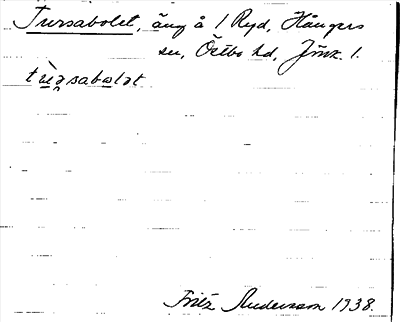 Tursabolet, äng å 1 Ryd, Hångers
sn, Östbo hd, Jönk. l.
Fritz Andersson 1938.